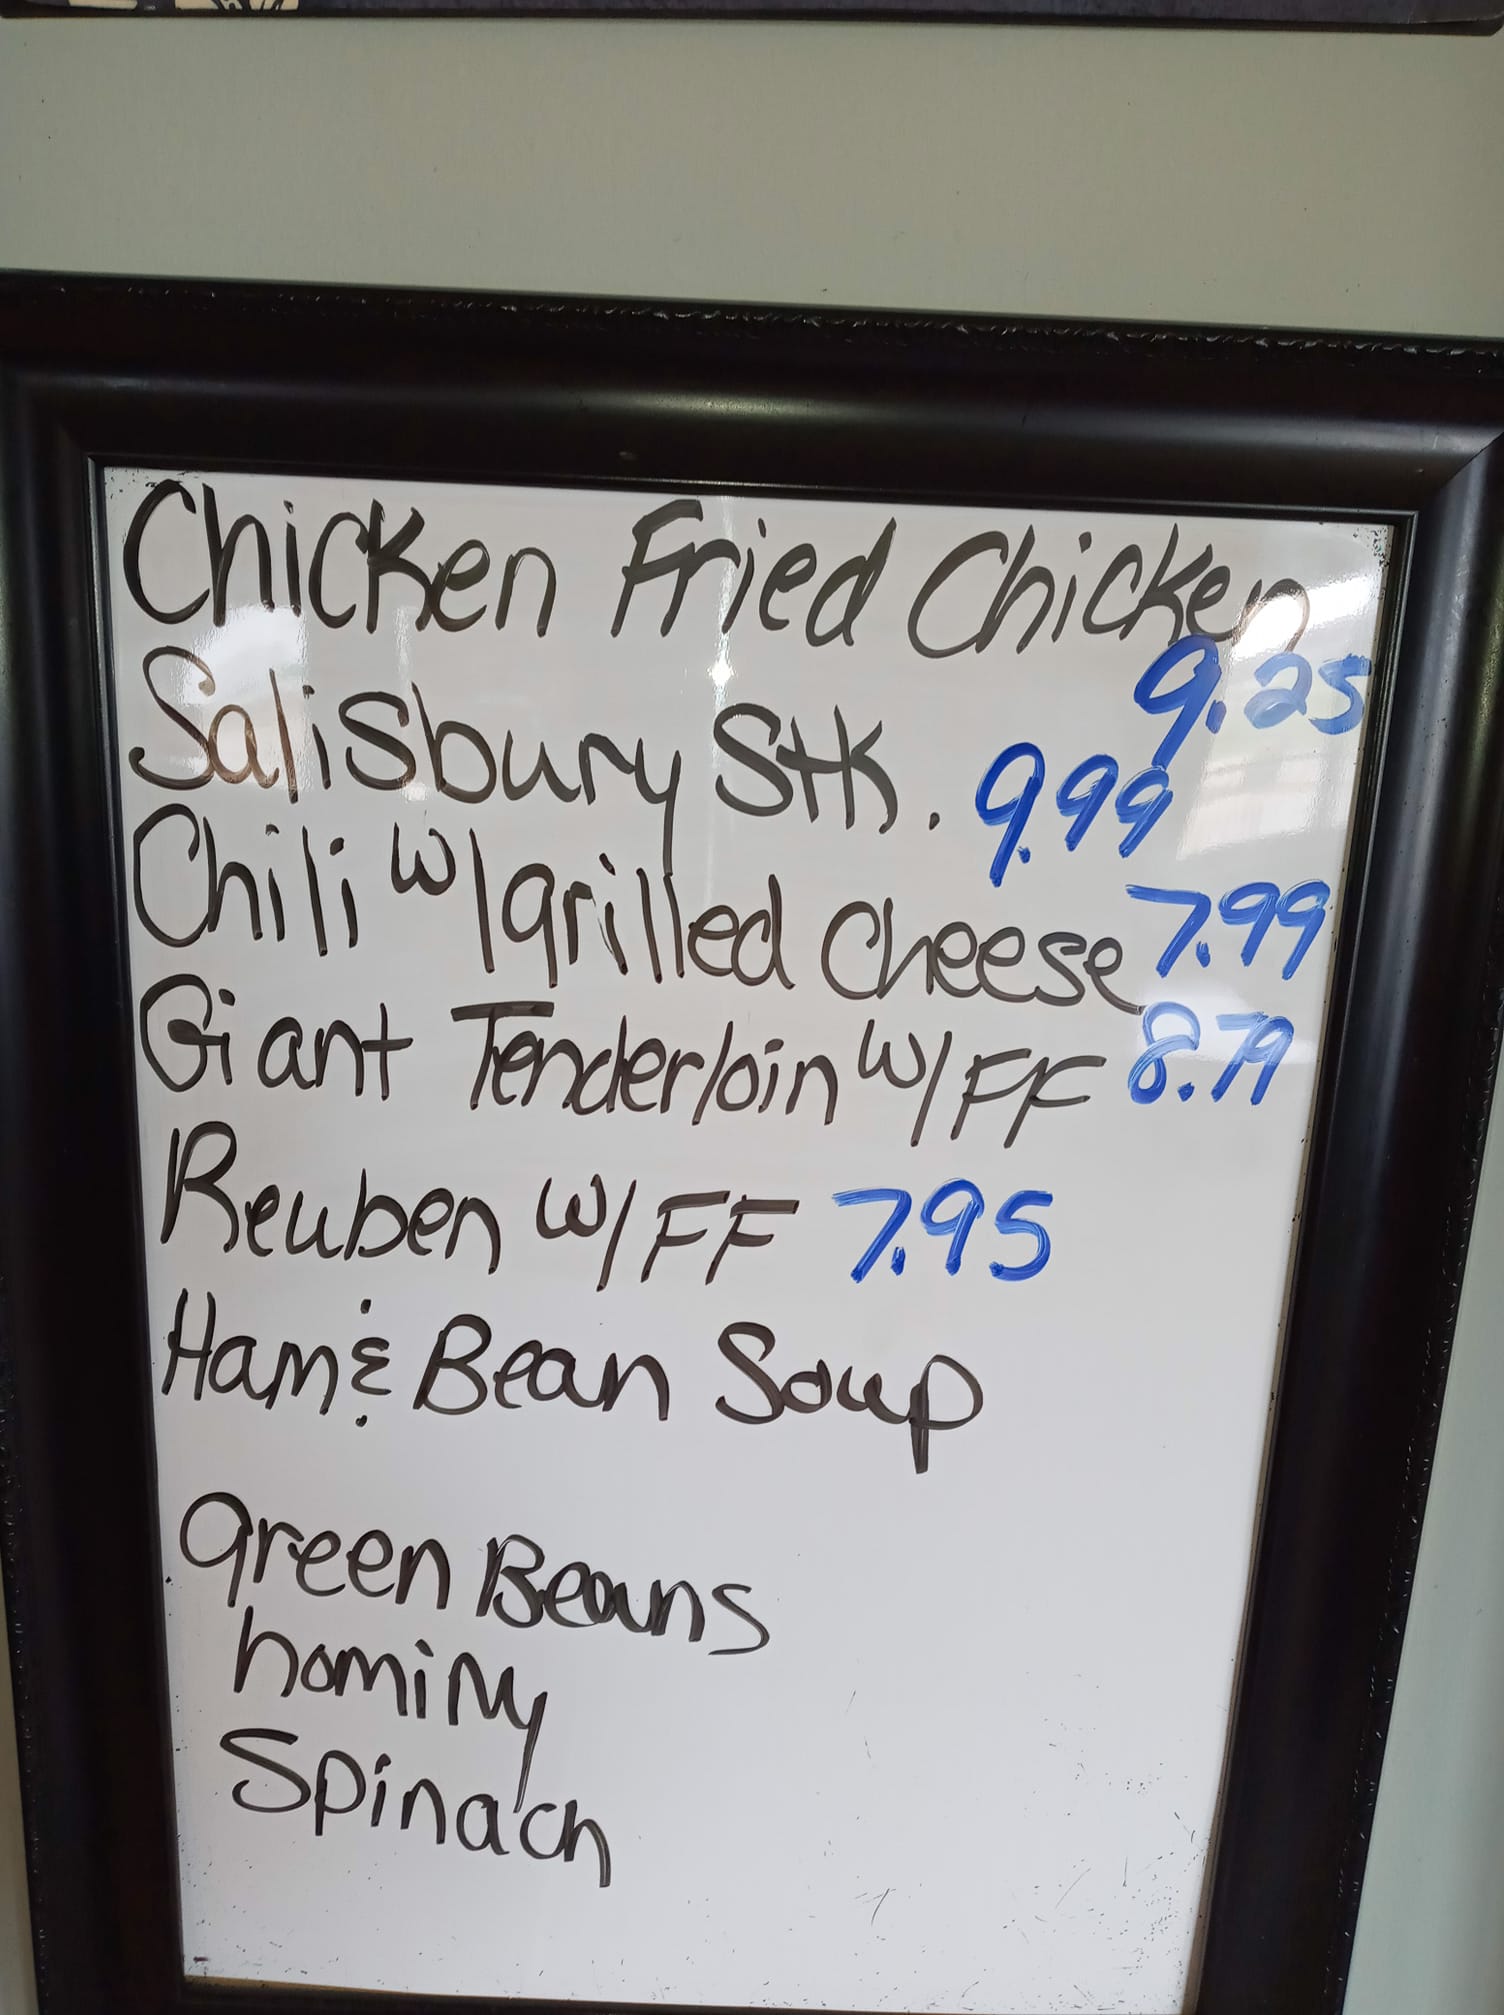 Chicken Fried Chicken
9.25
Salisbury Stk. 9.99
Chili w/grilled Cheese 7.99
Giant Tenderloin w/FF 8.79
Reuben w/FF 7.95
Ham & Bean Soup
green Beans
hominy
Spinach